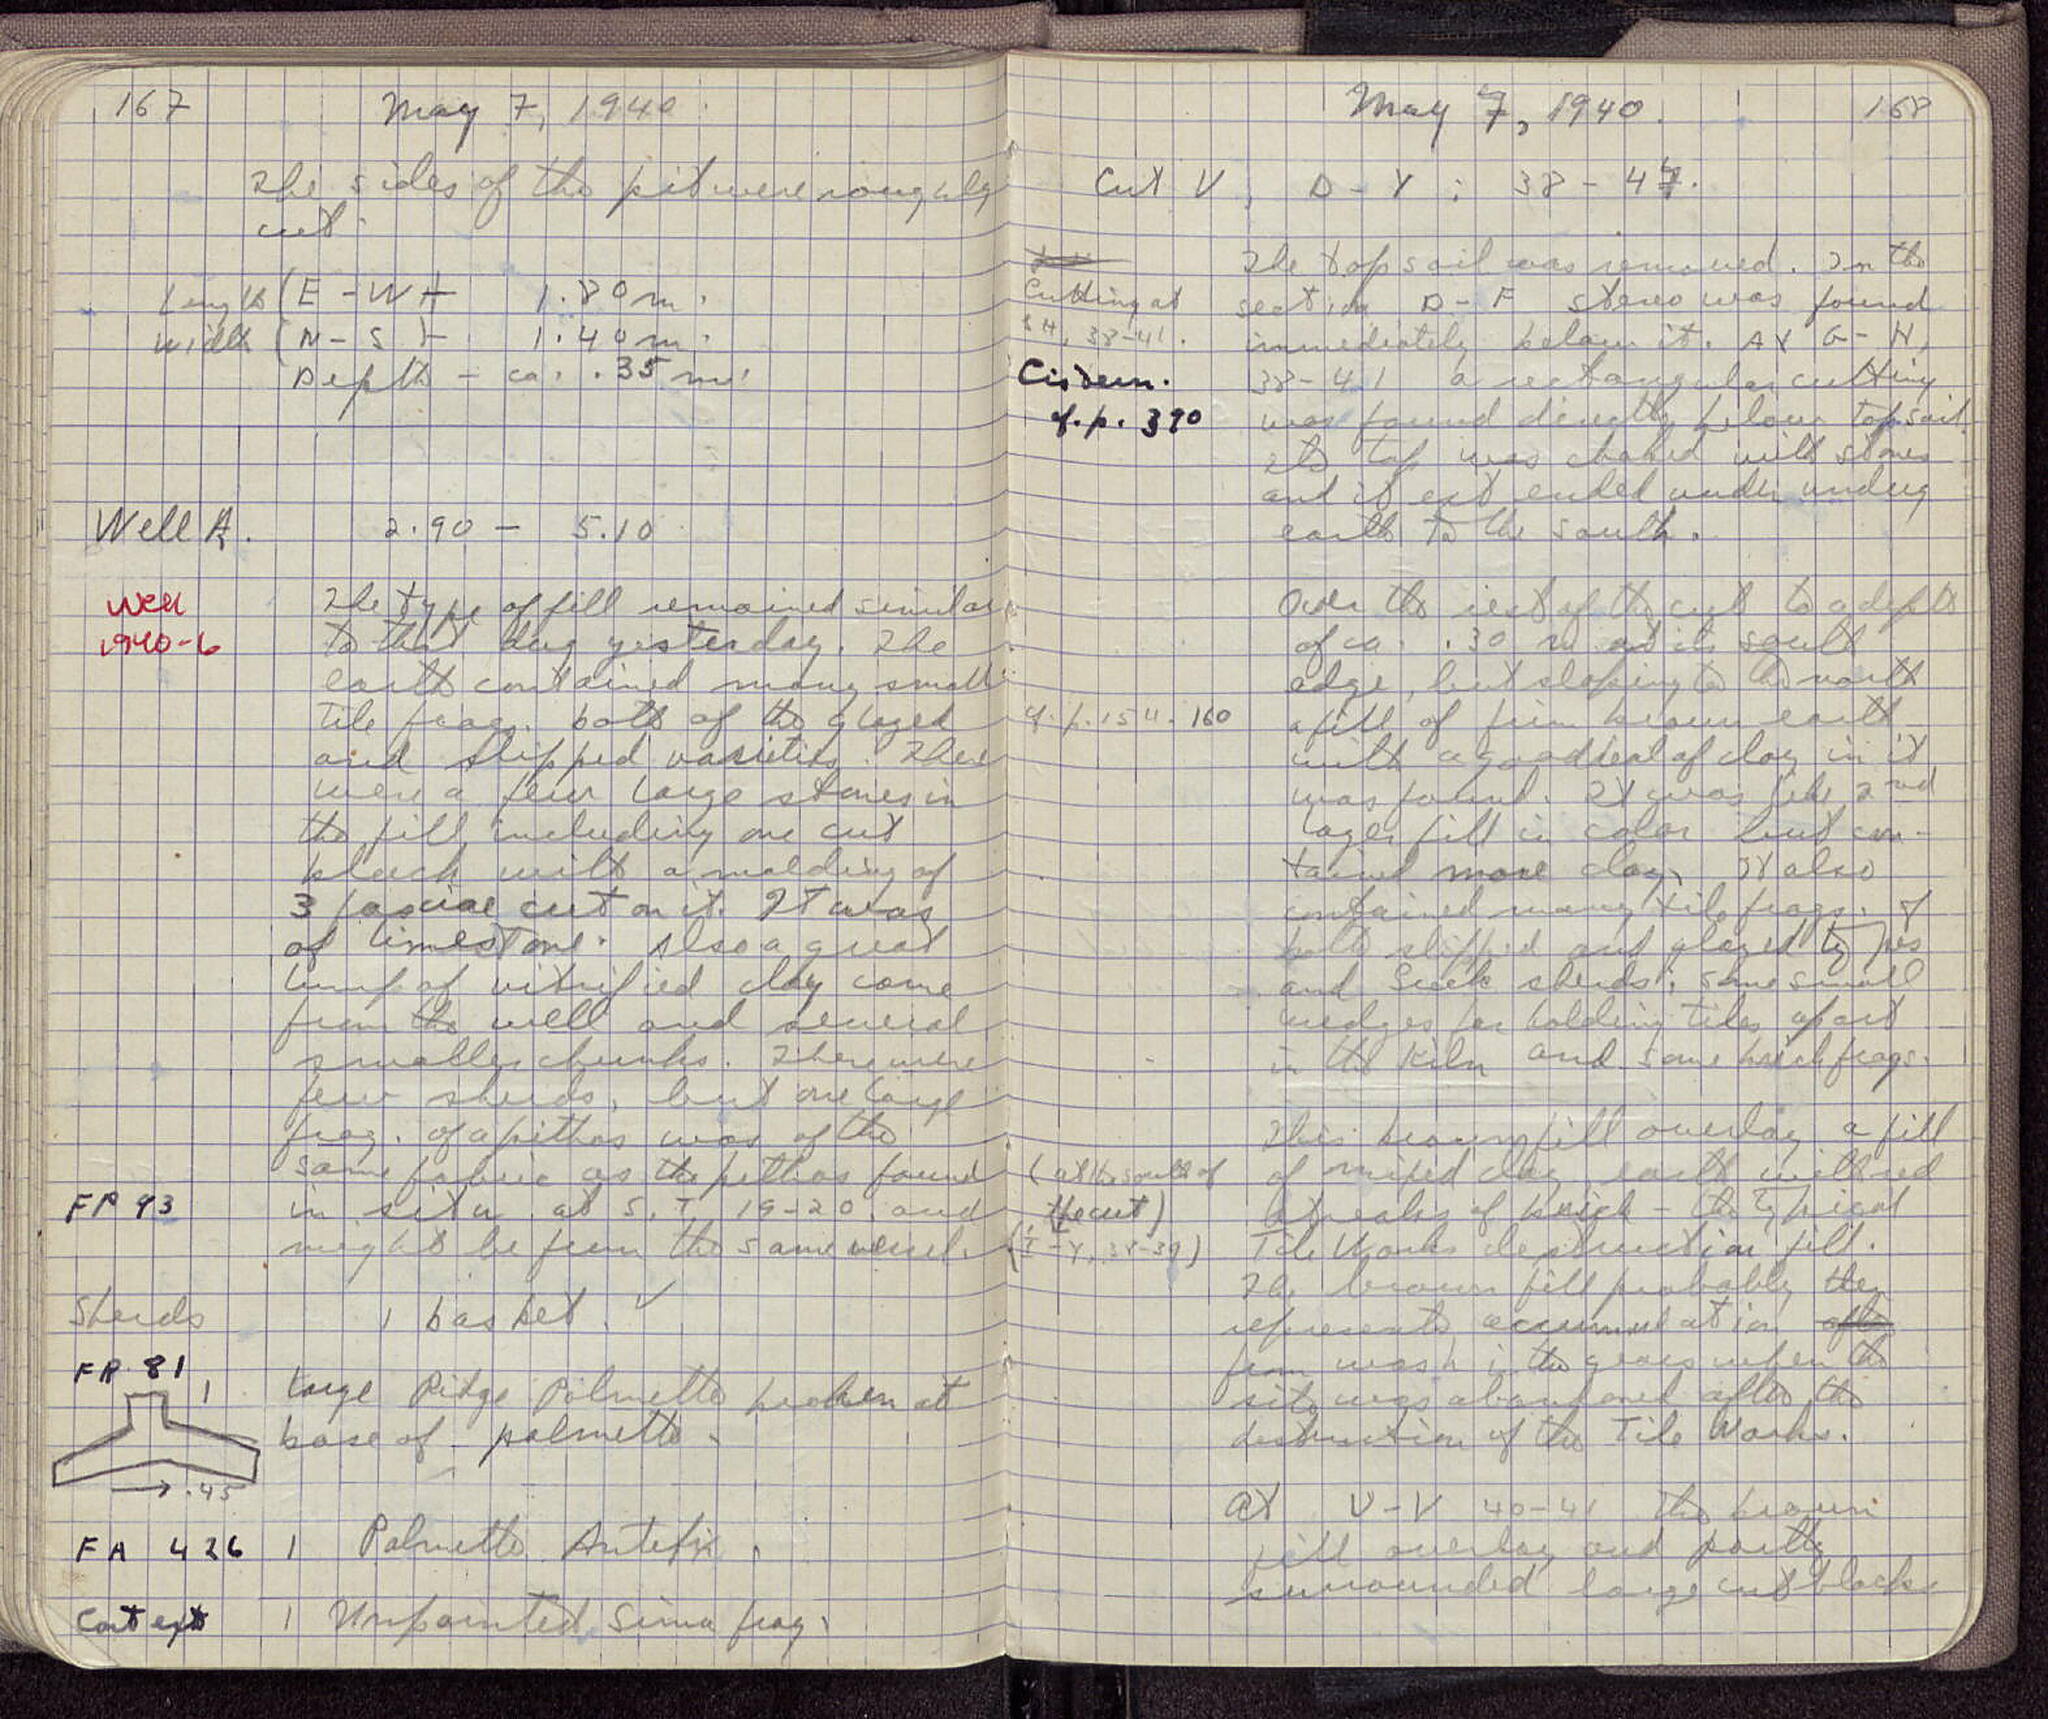 167 May 7, 1940.
The sides of the pit were roughly
cut.
Length (E-W) - 1.80 m.
Width (N-S) - 1.40 m.
Depth - ca. .35 m.
Well A. 2.90 - 5.10
Well
1940-6
The type of fill remained similar
to that dug yesterday. The
earth contained many small
tile frag. both of the glazed
and slipped varieties. There
were a few large stones in
the fill including one cut
block with a molding of
3 fasciae cut on it. It was
of limestone. Also a great
lump of vitrified clay came
from the well and several
smaller chunks. There were
few sherds, but one large
frag. of a pithos was of the
same fabric as the pithos found
FP 93 in situ at S, T 19-20, and
might be from the same vessel.
Sherds 1 basket. ✓
FR 81
1 Large Ridge Palmette broken at
base of palmette.
.45
FA 426 1 Palmette Antefix.
Context 1 Unpainted Sima frag.
May 7, 1940. 168
Cut V, D-Y: 38-47.
Cutting at
GH, 38-41.
Cistern.
cf. p. 390
The topsoil was removed. In the
section D-F stereo was found
immediately below it. At G-H,
38-41 a rectangular cutting
was found directly below topsoil.
Its top was choked with stones
and it extended under undug
earth to the south.
Over the rest of the cut to a depth
of ca. .30 m at its south
edge, but sloping to the north
cf. p. 154. 160 a fill of firm brown earth
with a good deal of clay in it
was found. It was like 2nd
layer fill in color but con-
tained more clay. It also
contained many tile frags. of
both slipped and glazed types
and Greek sherds; some small
wedges for holding tiles apart
in the kiln and some brick frags.
This brown fill overlay a fill
(at the south of
the cut)
of mixed clay, earth with red
streaks of brick - the typical
Tile Works destruction fill.
The brown fill probably then
represents accumulation
from wash in the years when the
site was abandoned after the
destruction of the Tile Works.
At U-V 40-41 the brown
fill overlay and partly
surrounded large cut blocks